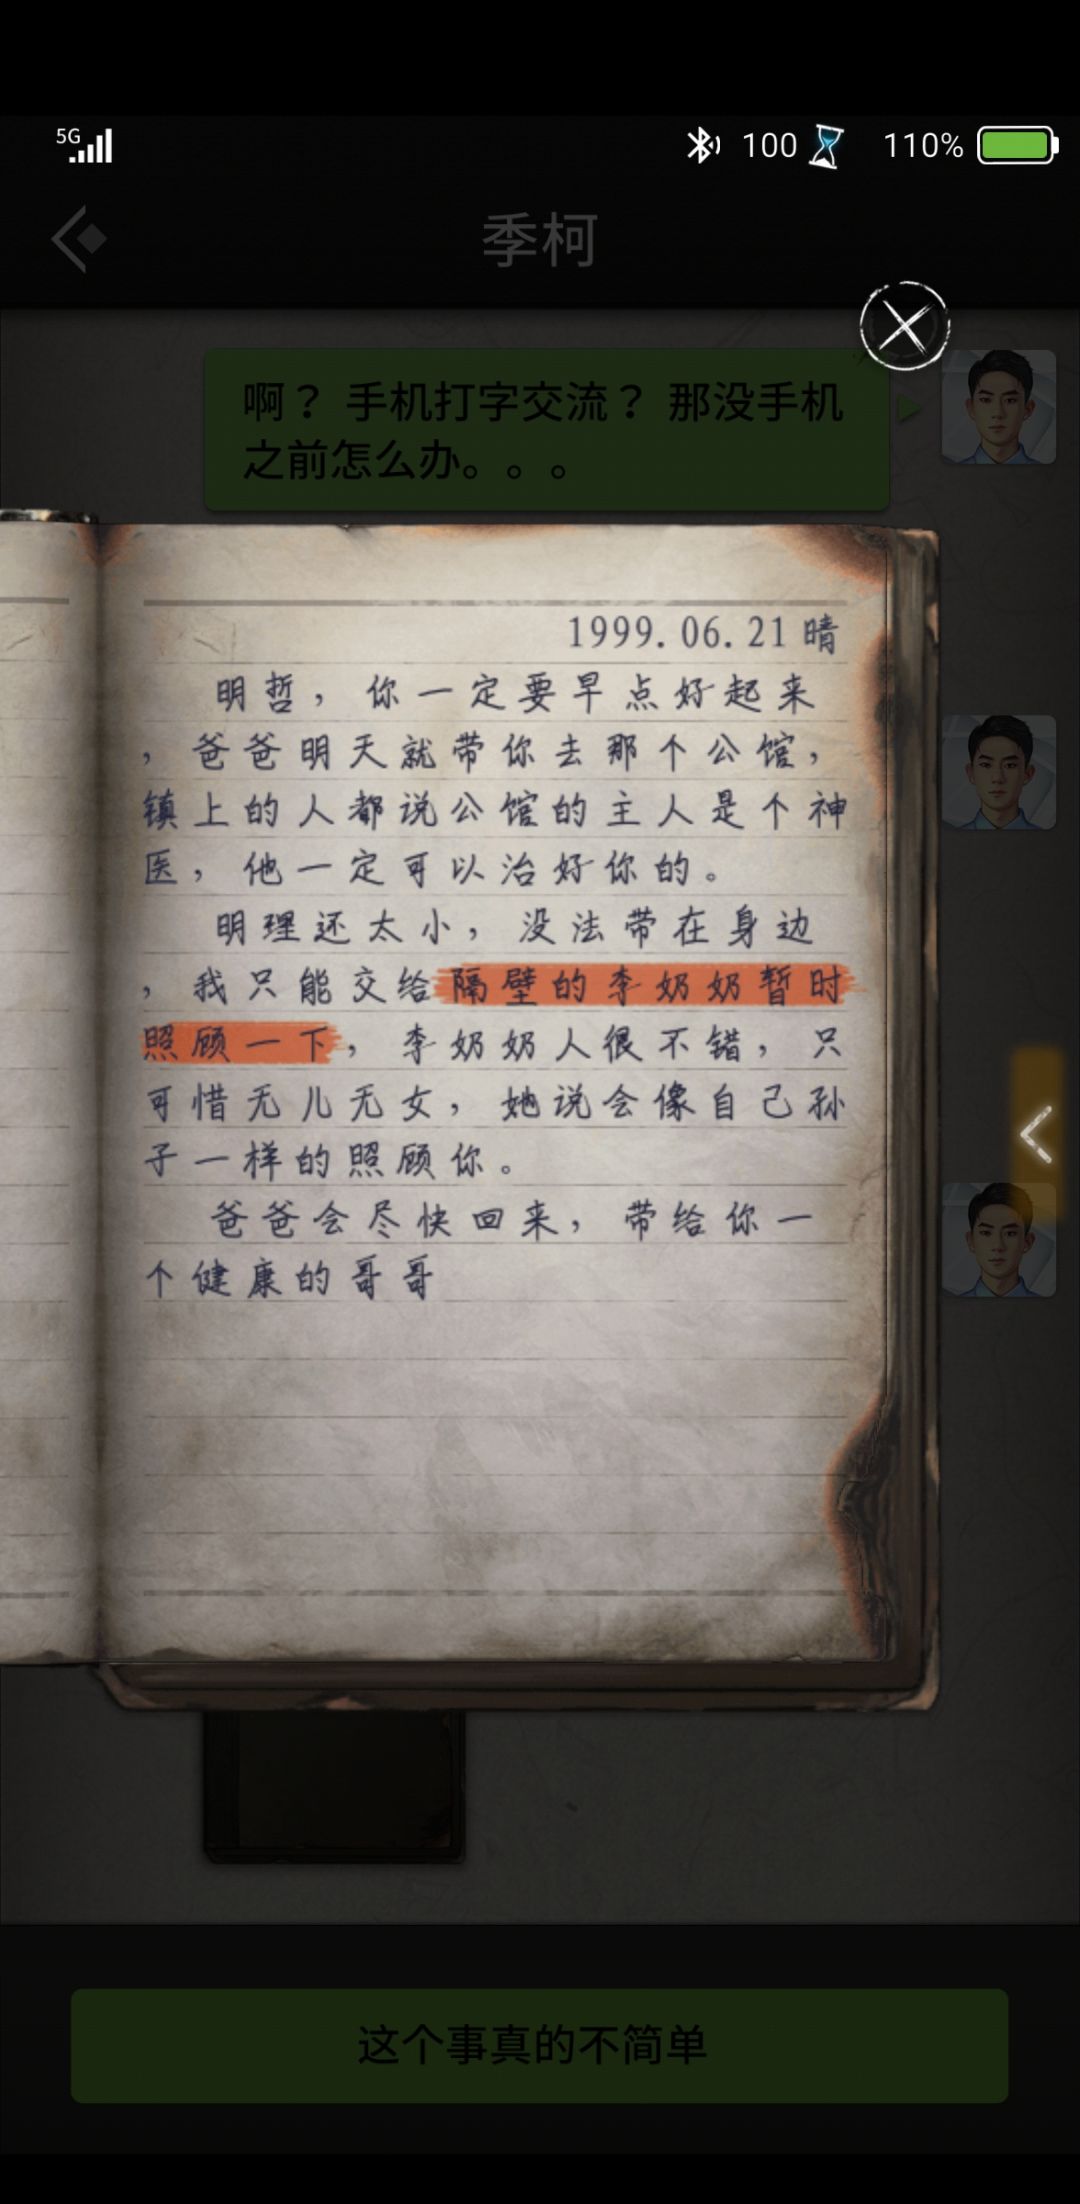 5G
100
110%
季柯
啊？ 手机打字交流？ 那没手机
之前怎么办。。。
1999.06.21 晴
明哲，你一定要早点好起来
，爸爸明天就带你去那个公馆，
镇上的人都说公馆的主人是个神
医，他一定可以治好你的。
明理还太小，没法带在身边
，我只能交给隔壁的李奶奶暂时
照顾一下，李奶奶人很不错，只
可惜无儿无女，她说会像自己孙
子一样的照顾你。
爸爸会尽快回来，带给你一
个健康的哥哥
这个事真的不简单